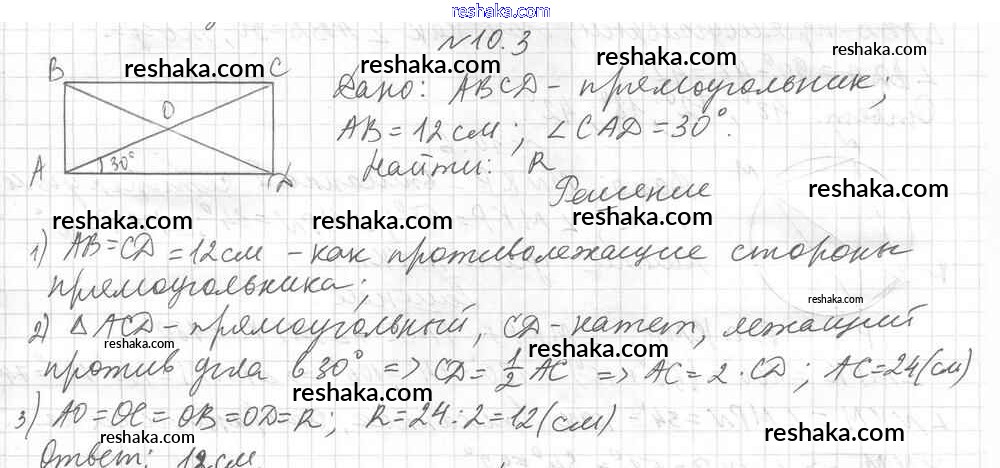 reshaka.com
№10.3
B C
O
A 30° D
Дано: ABCD - прямоугольник;
AB = 12 см; ∠CAD = 30°.
Найти: R
Решение
1) AB = CD = 12 см - как противолежащие стороны
прямоугольника;
2) △ACD - прямоугольный, CD - катет, лежащий
против угла в 30° => CD = 1/2 AC => AC = 2 · CD; AC = 24 (см)
3) AO = OC = OB = OD = R; R = 24 : 2 = 12 (см)
Ответ: 12 см.
reshaka.com
reshaka.com
reshaka.com
reshaka.com
reshaka.com
reshaka.com
reshaka.com
reshaka.com
reshaka.com
reshaka.com
reshaka.com
reshaka.com
reshaka.com
reshaka.com